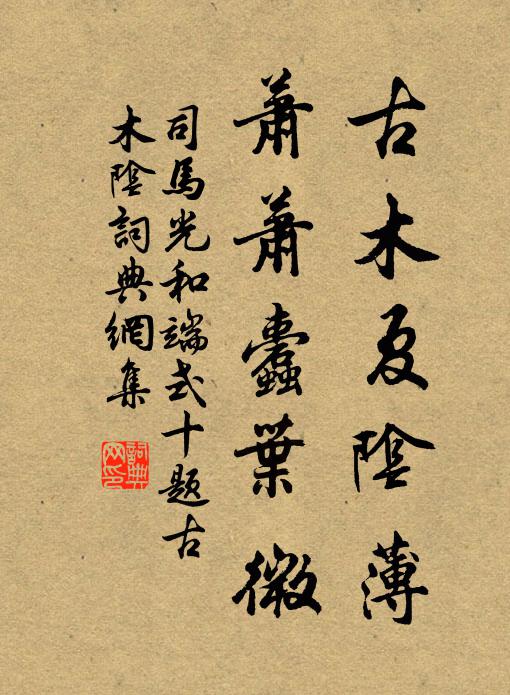 古木夏陰薄
蕭蕭蠹葉微
司馬光和端式十題古
木陰詞典網集
詞典網印